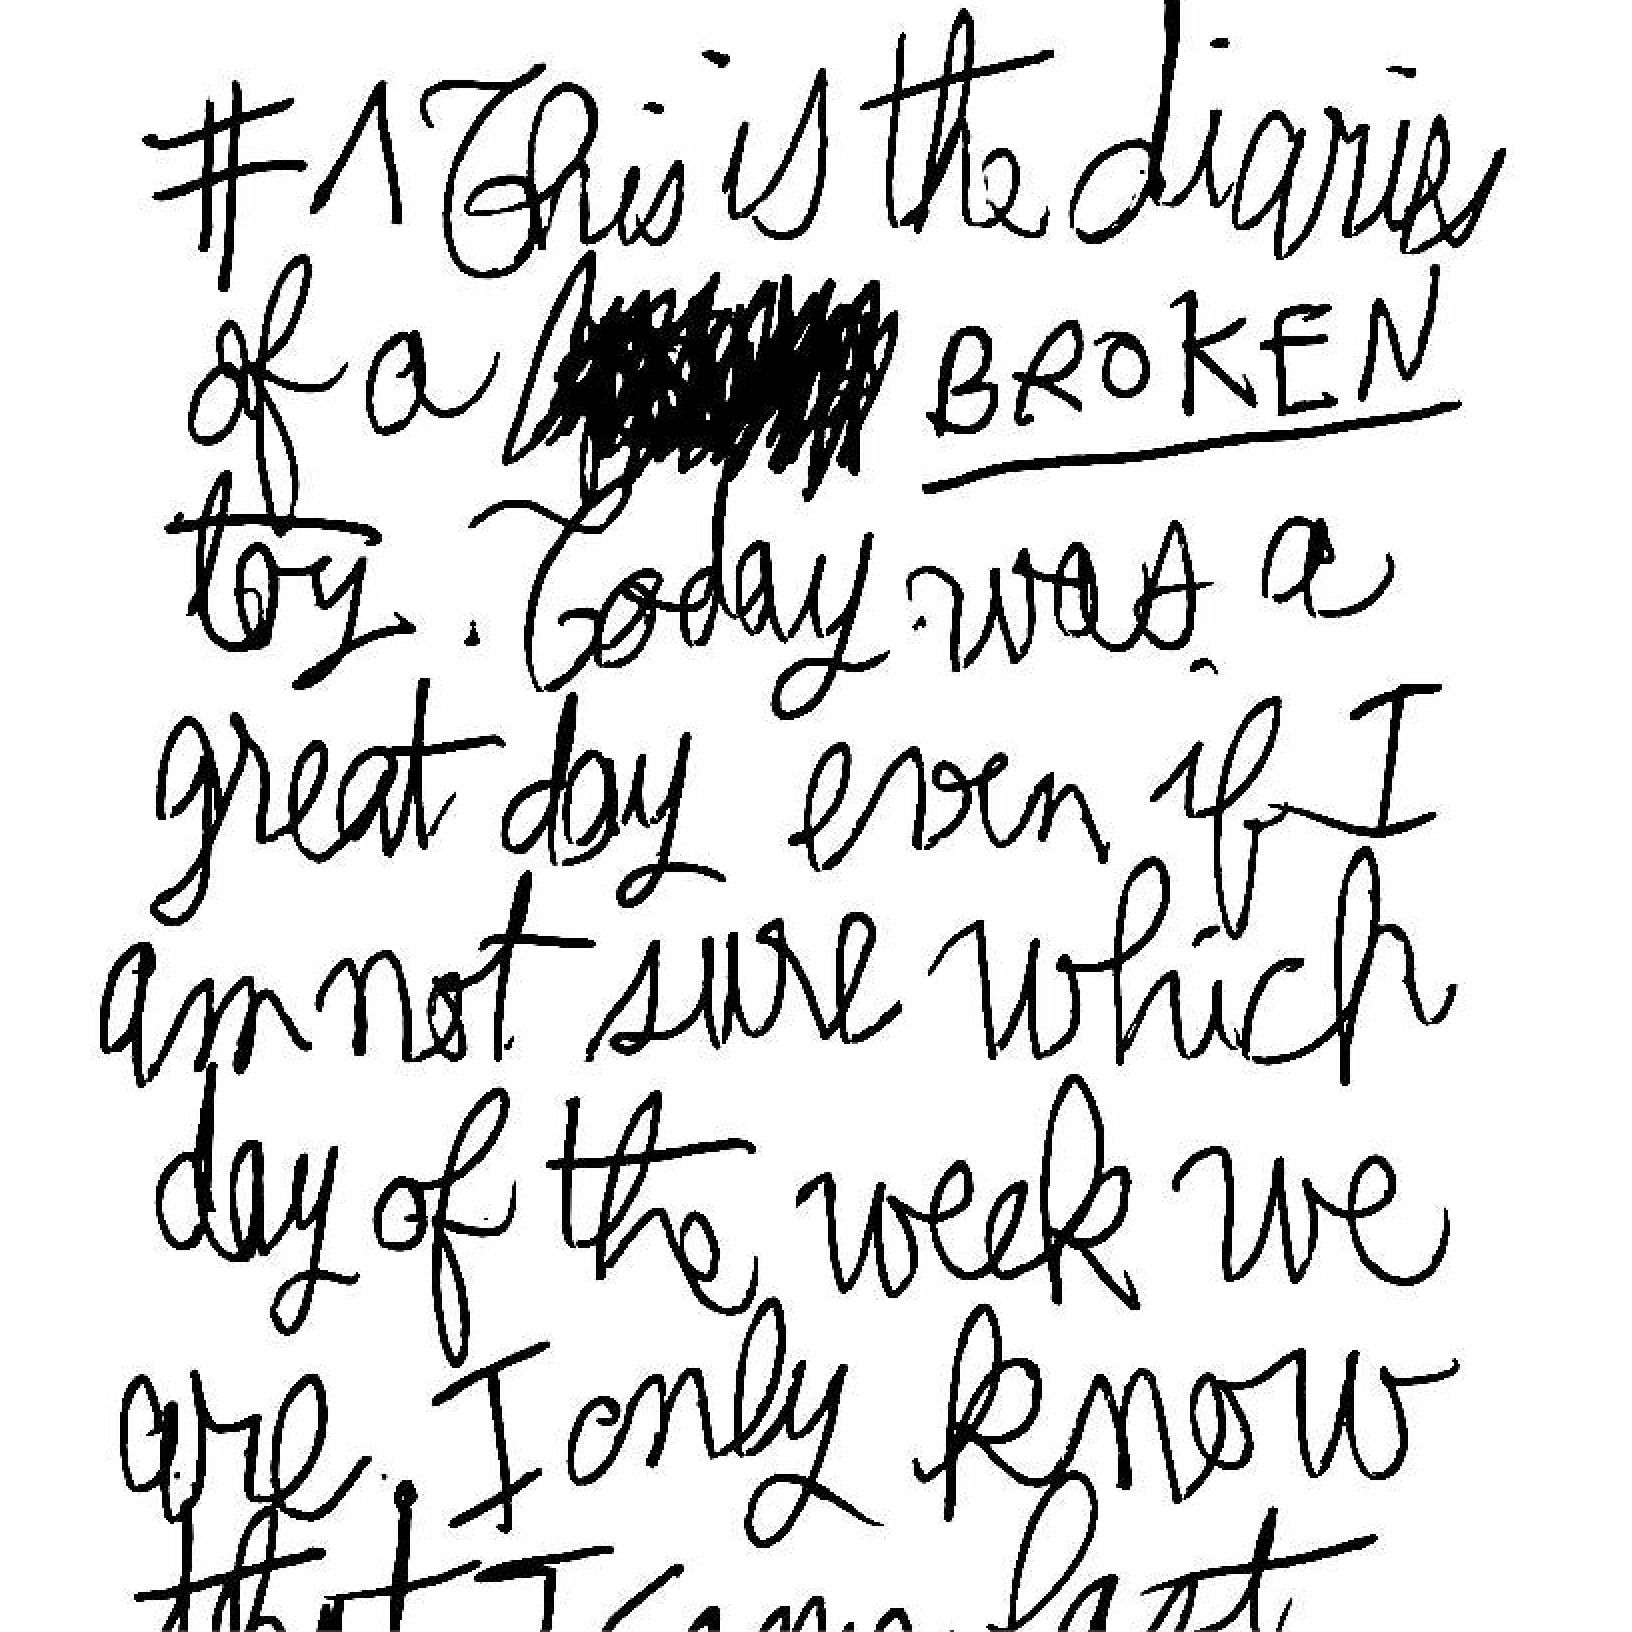 #1 This is the diaries
of a BROKEN
toy. Today was a
great day even if I
am not sure which
day of the week we
are. I only know
that I am lost